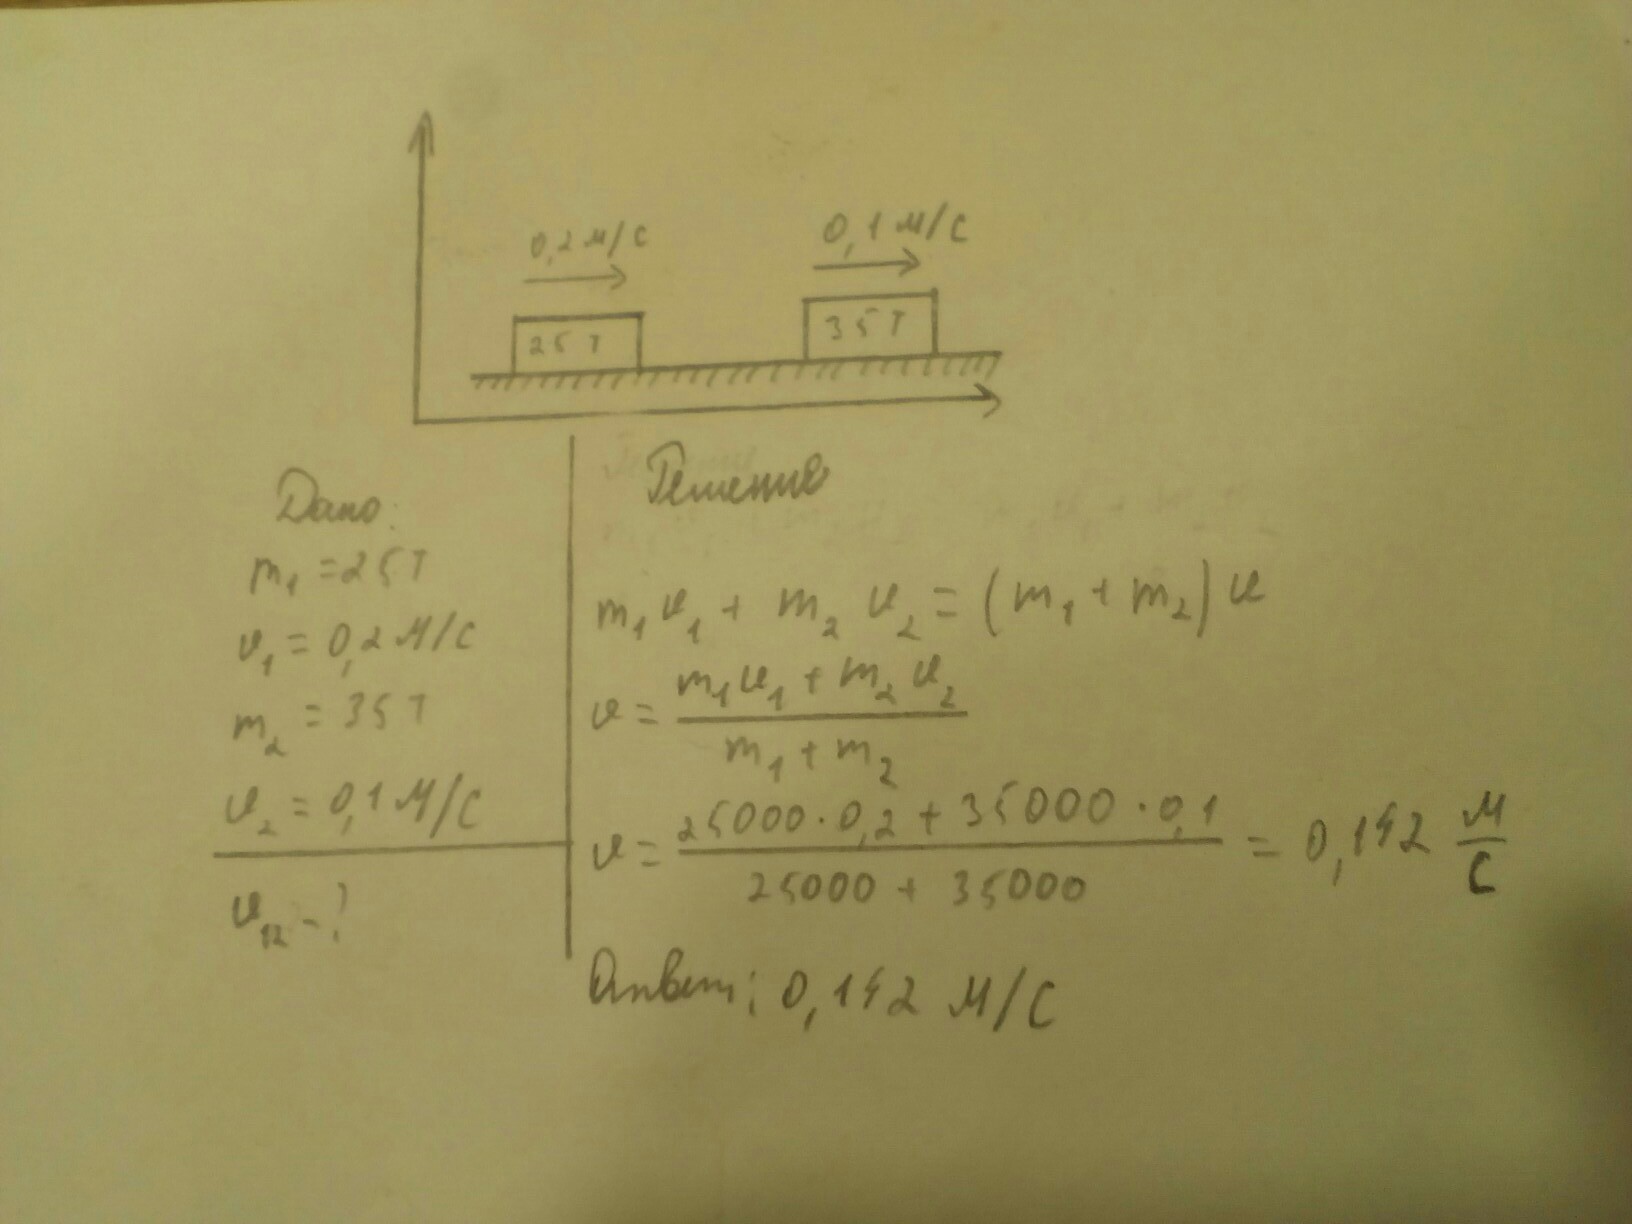 0,2 м/с 0,1 м/с
25 т 35 т
Дано:
m₁ = 25 т
υ₁ = 0,2 м/с
m₂ = 35 т
υ₂ = 0,1 м/с
υ₁₂ - ?
Решение
m₁υ₁ + m₂υ₂ = (m₁ + m₂)υ
υ = (m₁υ₁ + m₂υ₂) / (m₁ + m₂)
υ = (25000 · 0,2 + 35000 · 0,1) / (25000 + 35000) = 0,142 м/с
Ответ: 0,142 м/с